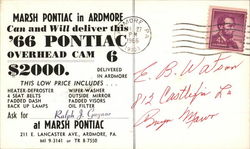 MARSH PONTIAC in ARDMORE
Can and Will deliver this
'66 PONTIAC
OVERHEAD CAM 6
$2000. DELIVERED IN ARDMORE
THIS LOW PRICE INCLUDES . . .
HEATER-DEFROSTER WIPER-WASHER
4 SEAT BELTS OUTSIDE MIRROR
PADDED DASH PADDED VISORS
BACK UP LAMPS OIL FILTER
Ask for Ralph J.
at MARSH PONTIAC
211 E. LANCASTER AVE., ARDMORE, PA.
MI 9-3141 or TR 8-7550
1966
E. B. Watson
812 Castlefin Ln
Bryn Mawr